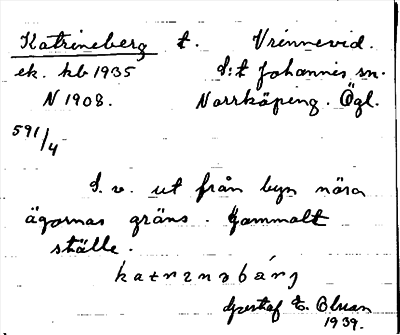 Katrineberg t. Vrinnevid.
ek. kb 1935 S:t Johannis sn.
N 1908. Norrköping. Ögl.
591/4
S. v. ut från byn nära
ägornas gräns. Gammalt
ställe.
Gustaf E. Olsson
1939.